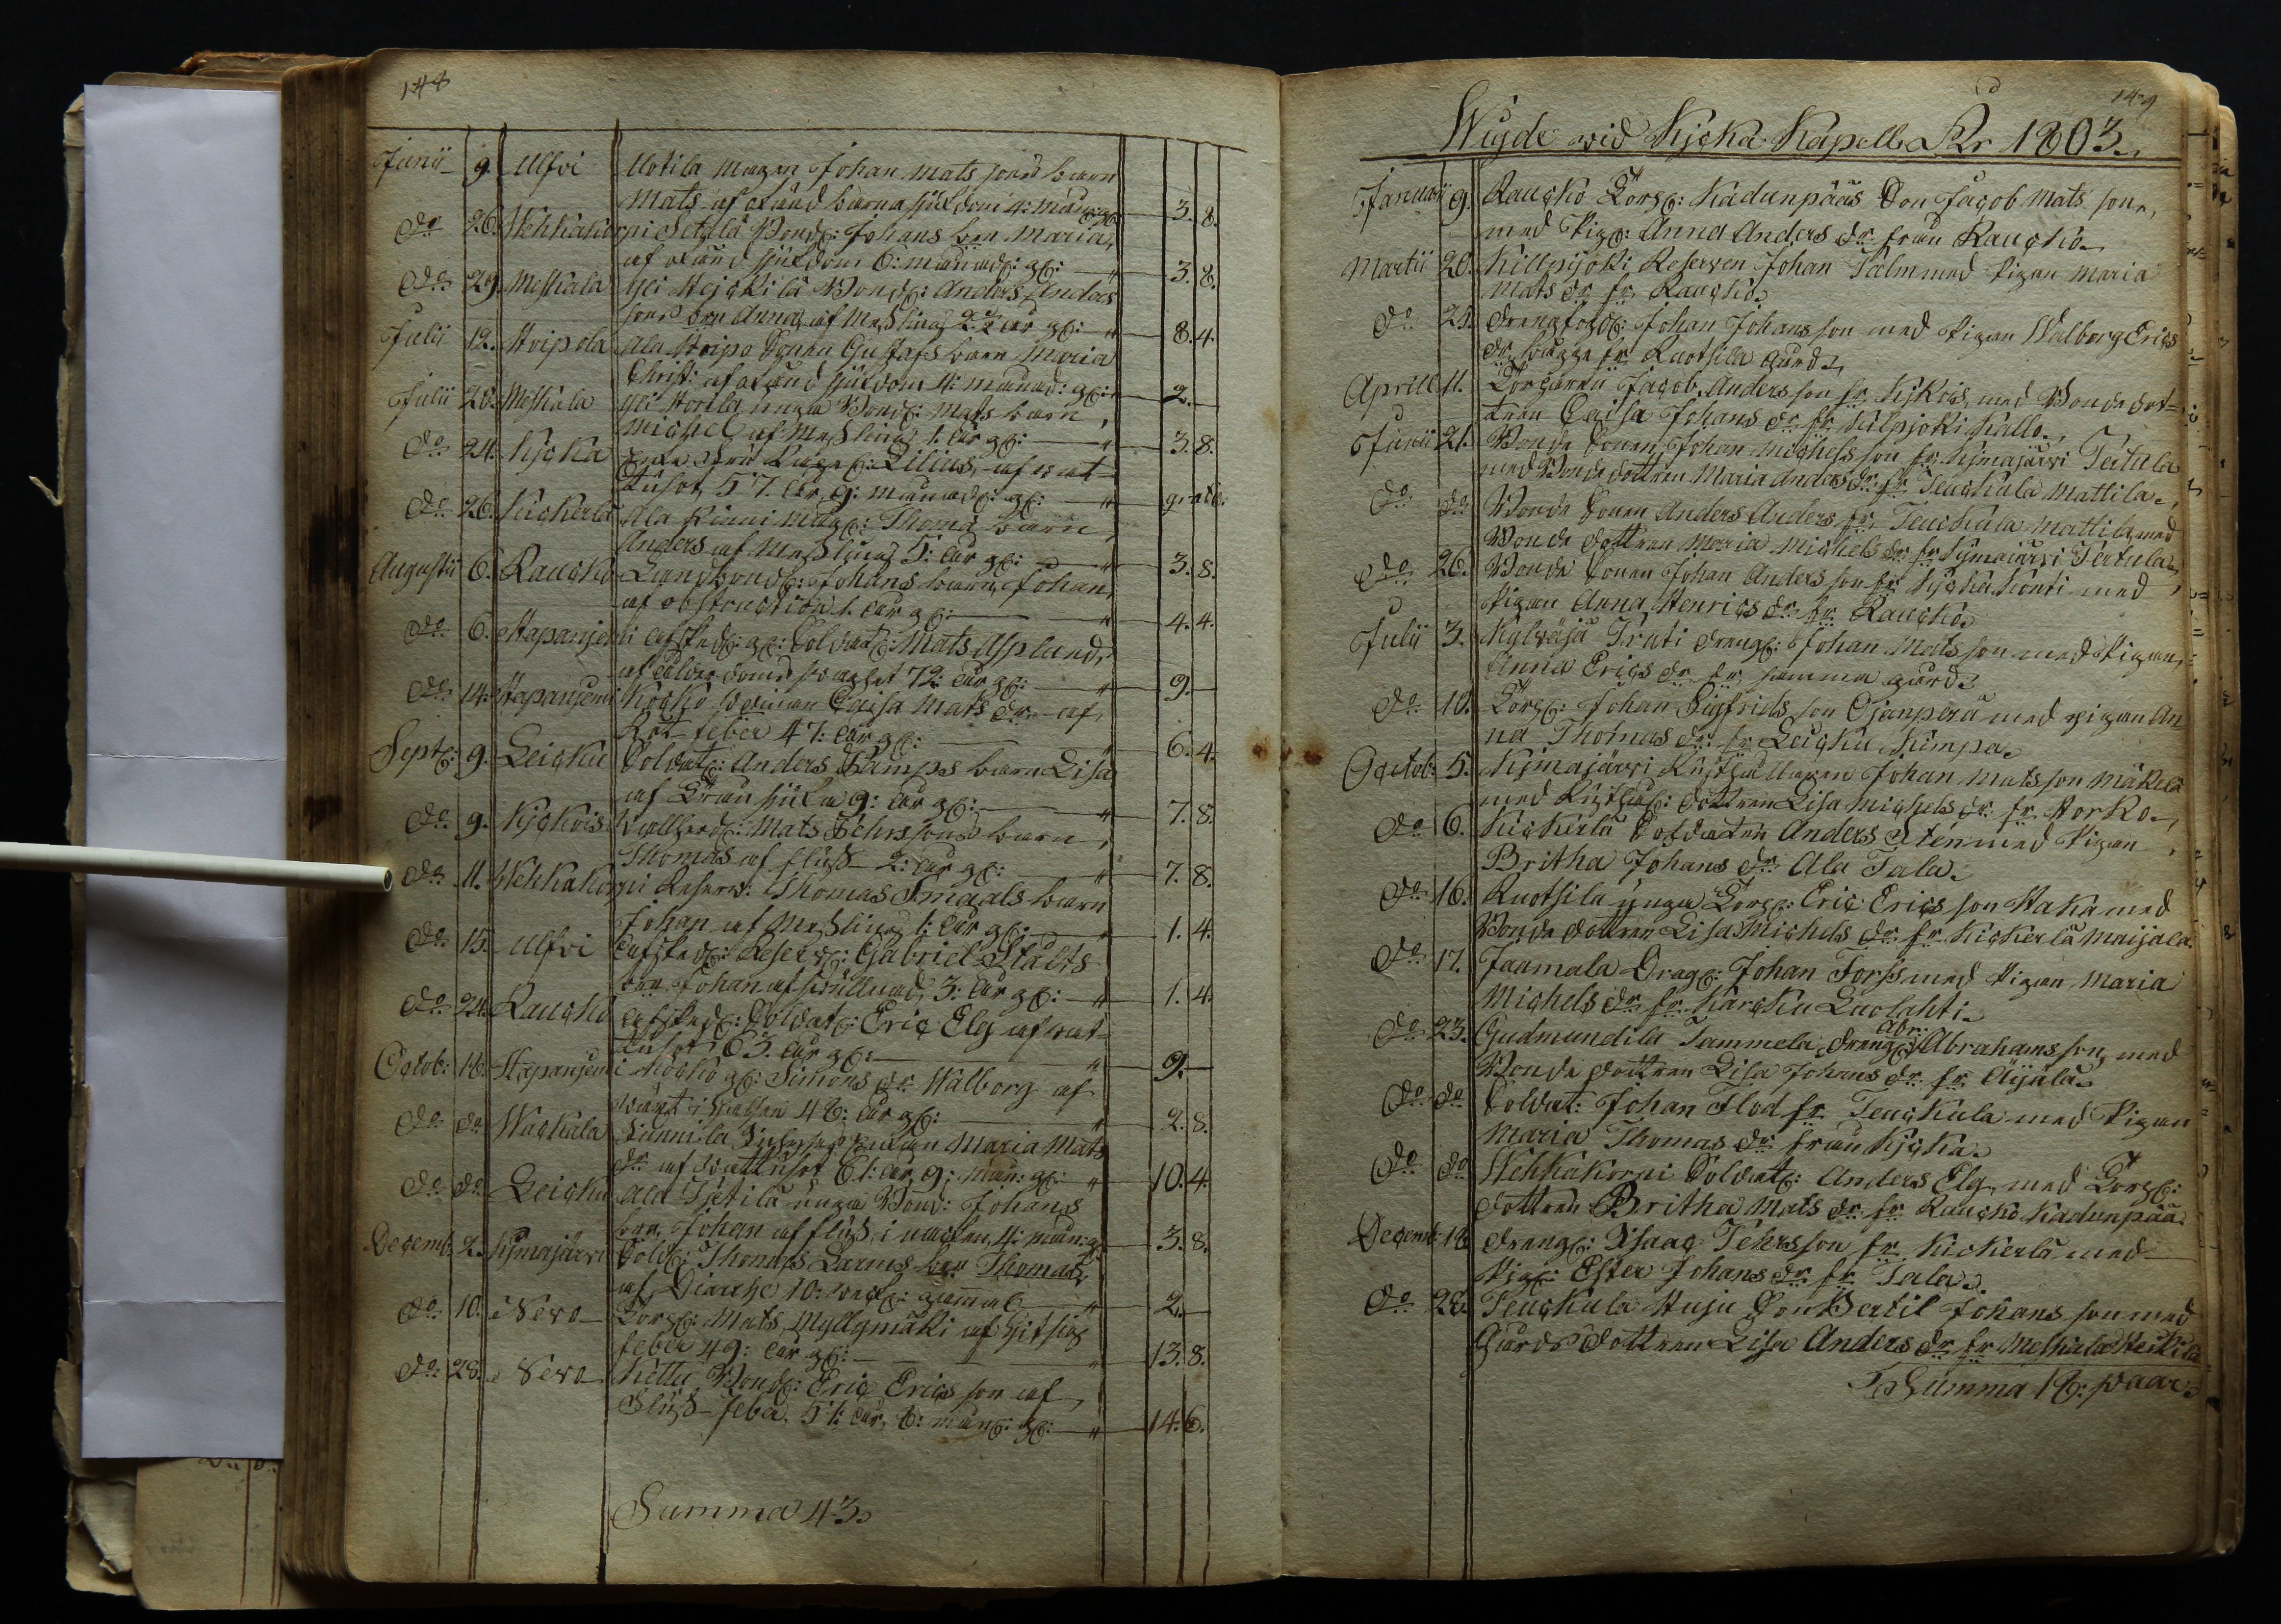 144
Junii 9. Ulfvi Uotila Magen Johan Mats sons barn
Mats af okänd barnasjukdom 4: mån: gl: 3. 8.
do 26. Wehkakorpi Setälä Bond: Johans barn Maria,
af okänd sjukdom 6: månad: gl: 3. 8.
do 29. Meskala Yli Heickilä Bond: Anders Anders
sons barn Anna, af Messling 2 1/2 år gl: 8. 4.
Julii 12. Hoipola Ala Hoipo Sonen Gustafs barn Maria
Christ: af okänd sjukdom 4: månad: gl: 2.
Julii 20. Meskala Yli unga Bond: Mats barn
Michel, af Messling 1: år gl: 3. 8.
do 24. Kjcka Lilius, af wat-
tusot, 57. år, 9: månad: gl: gratis.
do 26. Kickerlä Ala Kinni Måg: Thomas barn,
Anders af Messling 5: år gl: 3. 8.
Augustii 6. Raucko Landbond: Johans barn, Johan,
af obstruction 1. år gl: 4. 4.
do 6. Hapanjemi afsked: gl: Soldat: Mats Asplund,
af ålderdoms swaghet 72: år gl: 9.
do 14. Hapanjemi Kocko Caisa Mats dr af
Röt feber 47: år gl: 6. 4.
Sept: 9. Leicku Soldat: Anders Kamps barn Lisa
af Trånsjuka 9: år gl: 7. 8.
do 9. Kjckois Wallherd: Mats Pehrssons barn,
Thomas af fluss 2: år gl: 7. 8.
do 11. Wehkakorpi Reserv: Thomas Smaals barn
Johan af Messling 1: år gl: 1. 4.
do 15. Ulfvi afsked: Reserv: Gabriel Stålts
barn Johan af swullnad, 3: år gl: 1. 4.
do 24. Raucko afsked: Soldat: Eric Elg af wat-
tusot 63. år gl: 9.
Octob: 16. Hapanjemi Kocko gl: Simons dr Walborg af
wärk i halsen 48: år gl: 2. 8.
do do Wackala Sunnila enkan Maria Mats
dr af wattusot 61: år, 9: mån: gl: 10. 4.
do do Leicku Ala Tjetilä unga Bond: Johans
barn, Johan af fluss, i nacken, 4: mån: gl: 3. 8.
Decemb: 2. Kjmajärvi Sold: Thomas Larms barn Thomas,
af Diarrhe 10: weck: gammal 2.
do 10. Sero Torp: Mats Myllymäki af hitsig
feber 49: år gl: 13. 8.
do 28. Sero Kettu Bond: Eric Erics son af,
Fluss-feber. 51: år, 6: mån: gl: 14. 6.
Summa 43.
149
Wigde wid Kjcka Kapell År 1803.
Januarii 9. Raucko Torp: Kadunpääs Son Jacob Mats son,
med Pig: Anna Anders dr från Raucko
Martii 20. Killpijoki Reserven Johan Palm med Pigan Maria
Mats dr fr. Raucko.
do 25. Drengfogd: Johan Johans son med Pigan Walborg Erics
dr bägge fr Ruotsila gård.
Aprill 11. Torparen Jacob Anders son fr Kjkois, med Bonde dot-
tren Caisa Johans dr fr Kilpjoki Kallo.
Junii 21. Bonde Sonen Johan Michels son fr Kjmajärvi Tertula
med Bonde dottren Maria Anders dr fr Teuckula Mattila.
do do Bonde Sonen Anders Anders fr. Teuckula Mattila, med
Bonde dottren Maria Michels dr fr Kjmajärvi Tertula.
do 26. Bonde Sonen Johan Anders son fr Kjcka Konti med
Pigan Anna Henrics dr fr Raucko.
Julii 3. Kylväjä Trati Dreng: Johan Mats son med Pigan,
Anna Erics dr fr. samma gård.
do 10. Torp: Johan Sigfrids son Ojanperä med pigan An
na Thomas dr fr Leicku Kumpa.
Octob: 5. Kjmajärvi Rusthållaren Johan Mats son Mäkelä
med Rusthåll: dottren Lisa Michels dr fr Horko.
do 6. Kickerlä Soldaten Anders Sten med Pigan
Britha Johans dr Ala Sala.
do 16. Ruotsila unga Torp: Eric Erics son Haka med
Bonde dottren Lisa Michels dr fr Kickerlä Maijala.
do 17. Jaamala Drag: Johan Forss med Pigan Maria
Michels dr fr Karcku Luolahti.
do 23. Gudmundila Tammela Dreng: Abr: Abrahams son, med
Bonde dottren Lisa Johans dr fr Äijälä.
do do Soldat: Johan Flod fr Teuckula med Pigan
Maria Thomas dr från Kjcka.
do do Wehkakorpi Soldat: Anders Elg, med Torp:
dottren Britha Mats dr fr Raucko Kadunpää
Decemb: 18 Dreng: Isaac Pehrsson fr Kickerlä med
Pig: Ester Johans dr fr Sala.
do 28. Teuckula Huju Son Bertil Johans son med
Gårds dottren Lisa Anders dr fr Meskala Heikilä
Summa 16: paar.